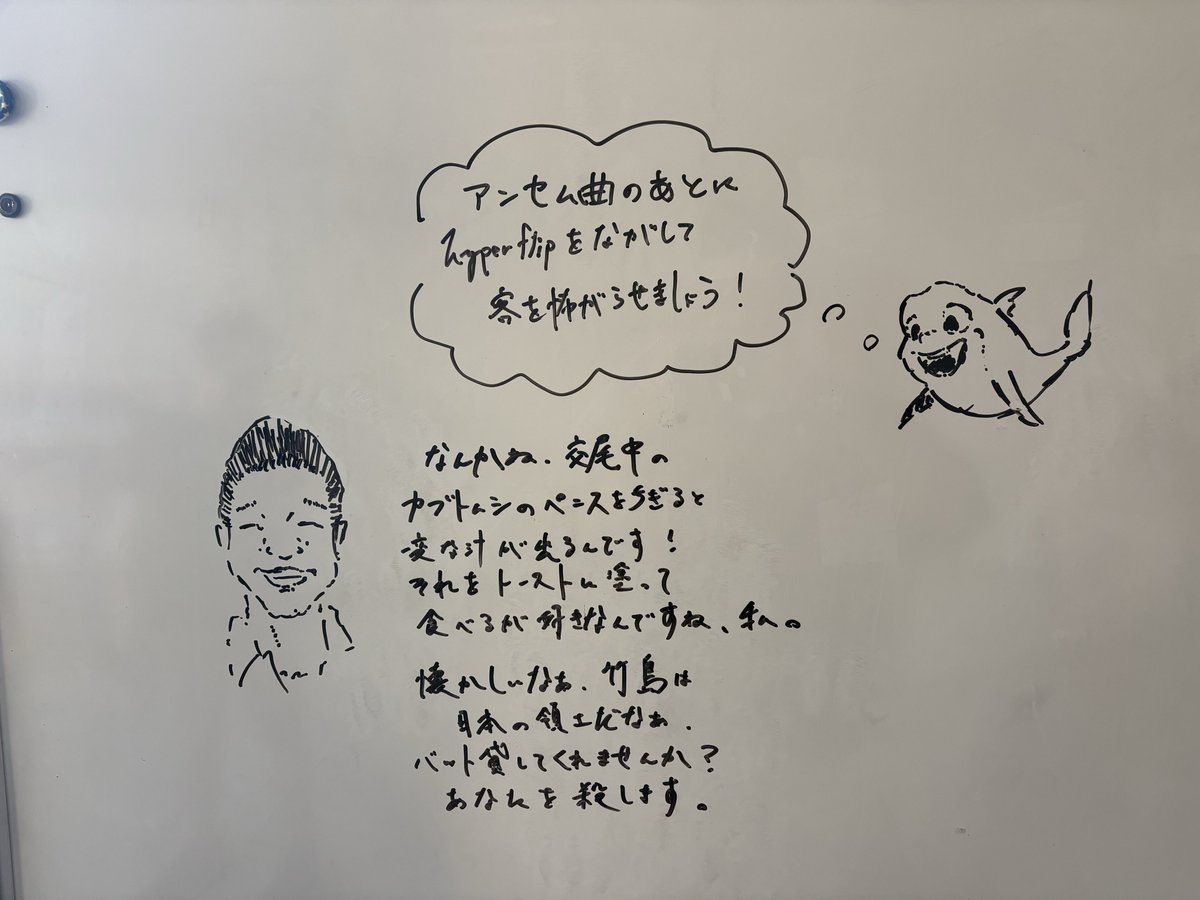 アンセム曲のあとに
hyperflipをながして
客を怖がらせましょう！
なんかね、交尾中の
カブトムシのペニスをちぎると
変な汁が出るんです！
それをトーストに塗って
食べるが好きなんですね、私。
懐かしいなぁ、竹島は
日本の領土だなぁ、
バット貸してくれませんか？
あなたを殺します。